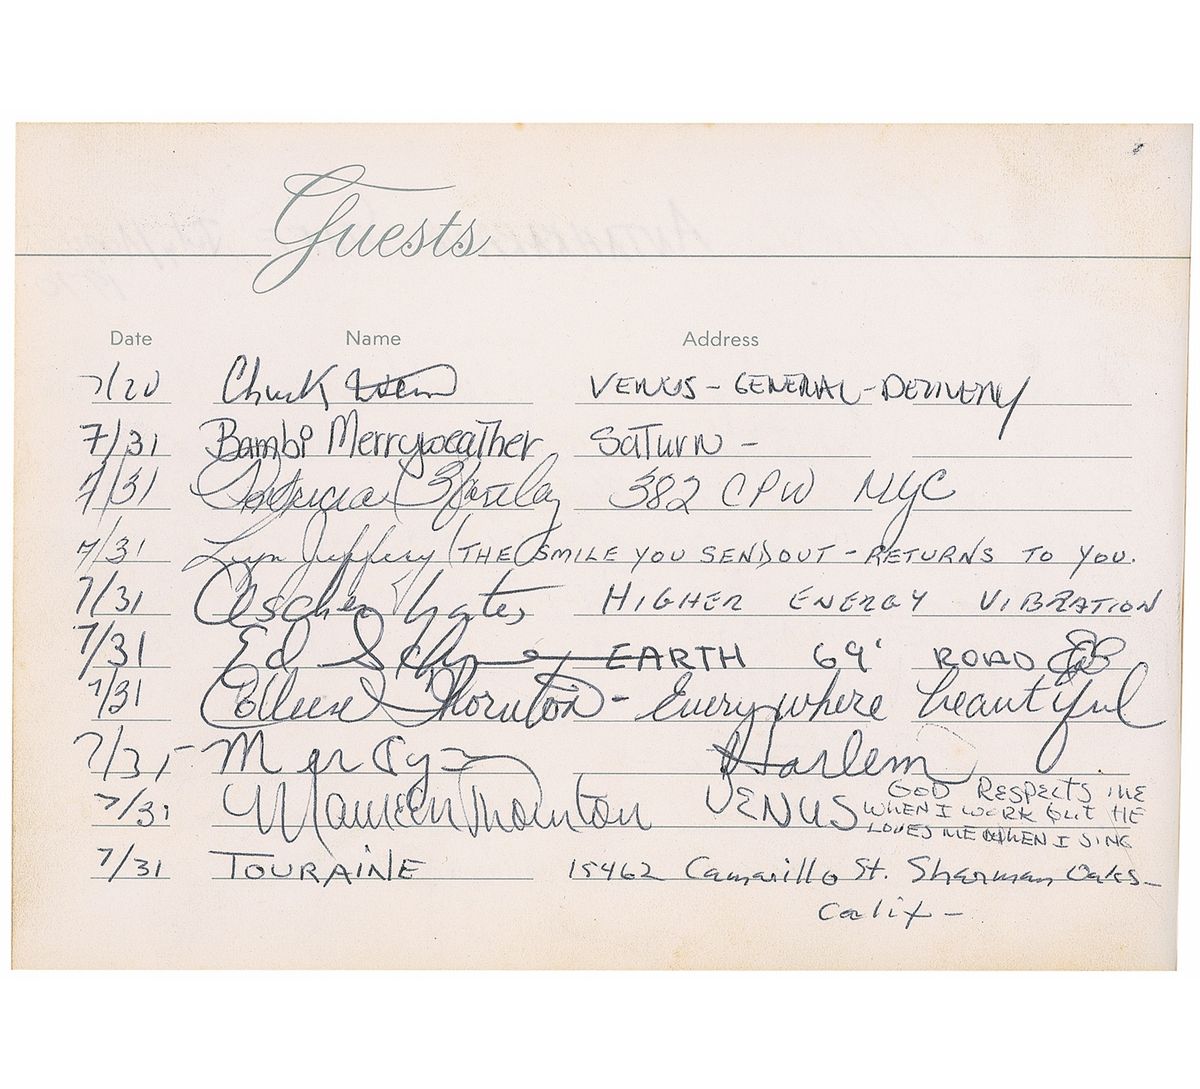 Guests
Date Name Address
7/20 Chuck Wein VENUS - GENERAL - DELIVERY
7/31 Bambi Merryweather SATURN -
7/31 Patricia 382 CPW NYC
7/31 Lyn Jeffery (THE SMILE YOU SENDOUT - RETURNS TO YOU.
7/31 Yates HIGHER ENERGY VIBRATION
7/31 Ed EARTH 69' ROAD
7/31 Colleen Thornton - Everywhere beautiful
7/31 - Harlem
7/31 Maureen Thornton VENUS GOD RESPECTS ME
WHEN I WORK BUT HE
LOVES ME WHEN I SING
7/31 TOURAINE 15462 Camarillo St. Sherman Oaks -
Calif -